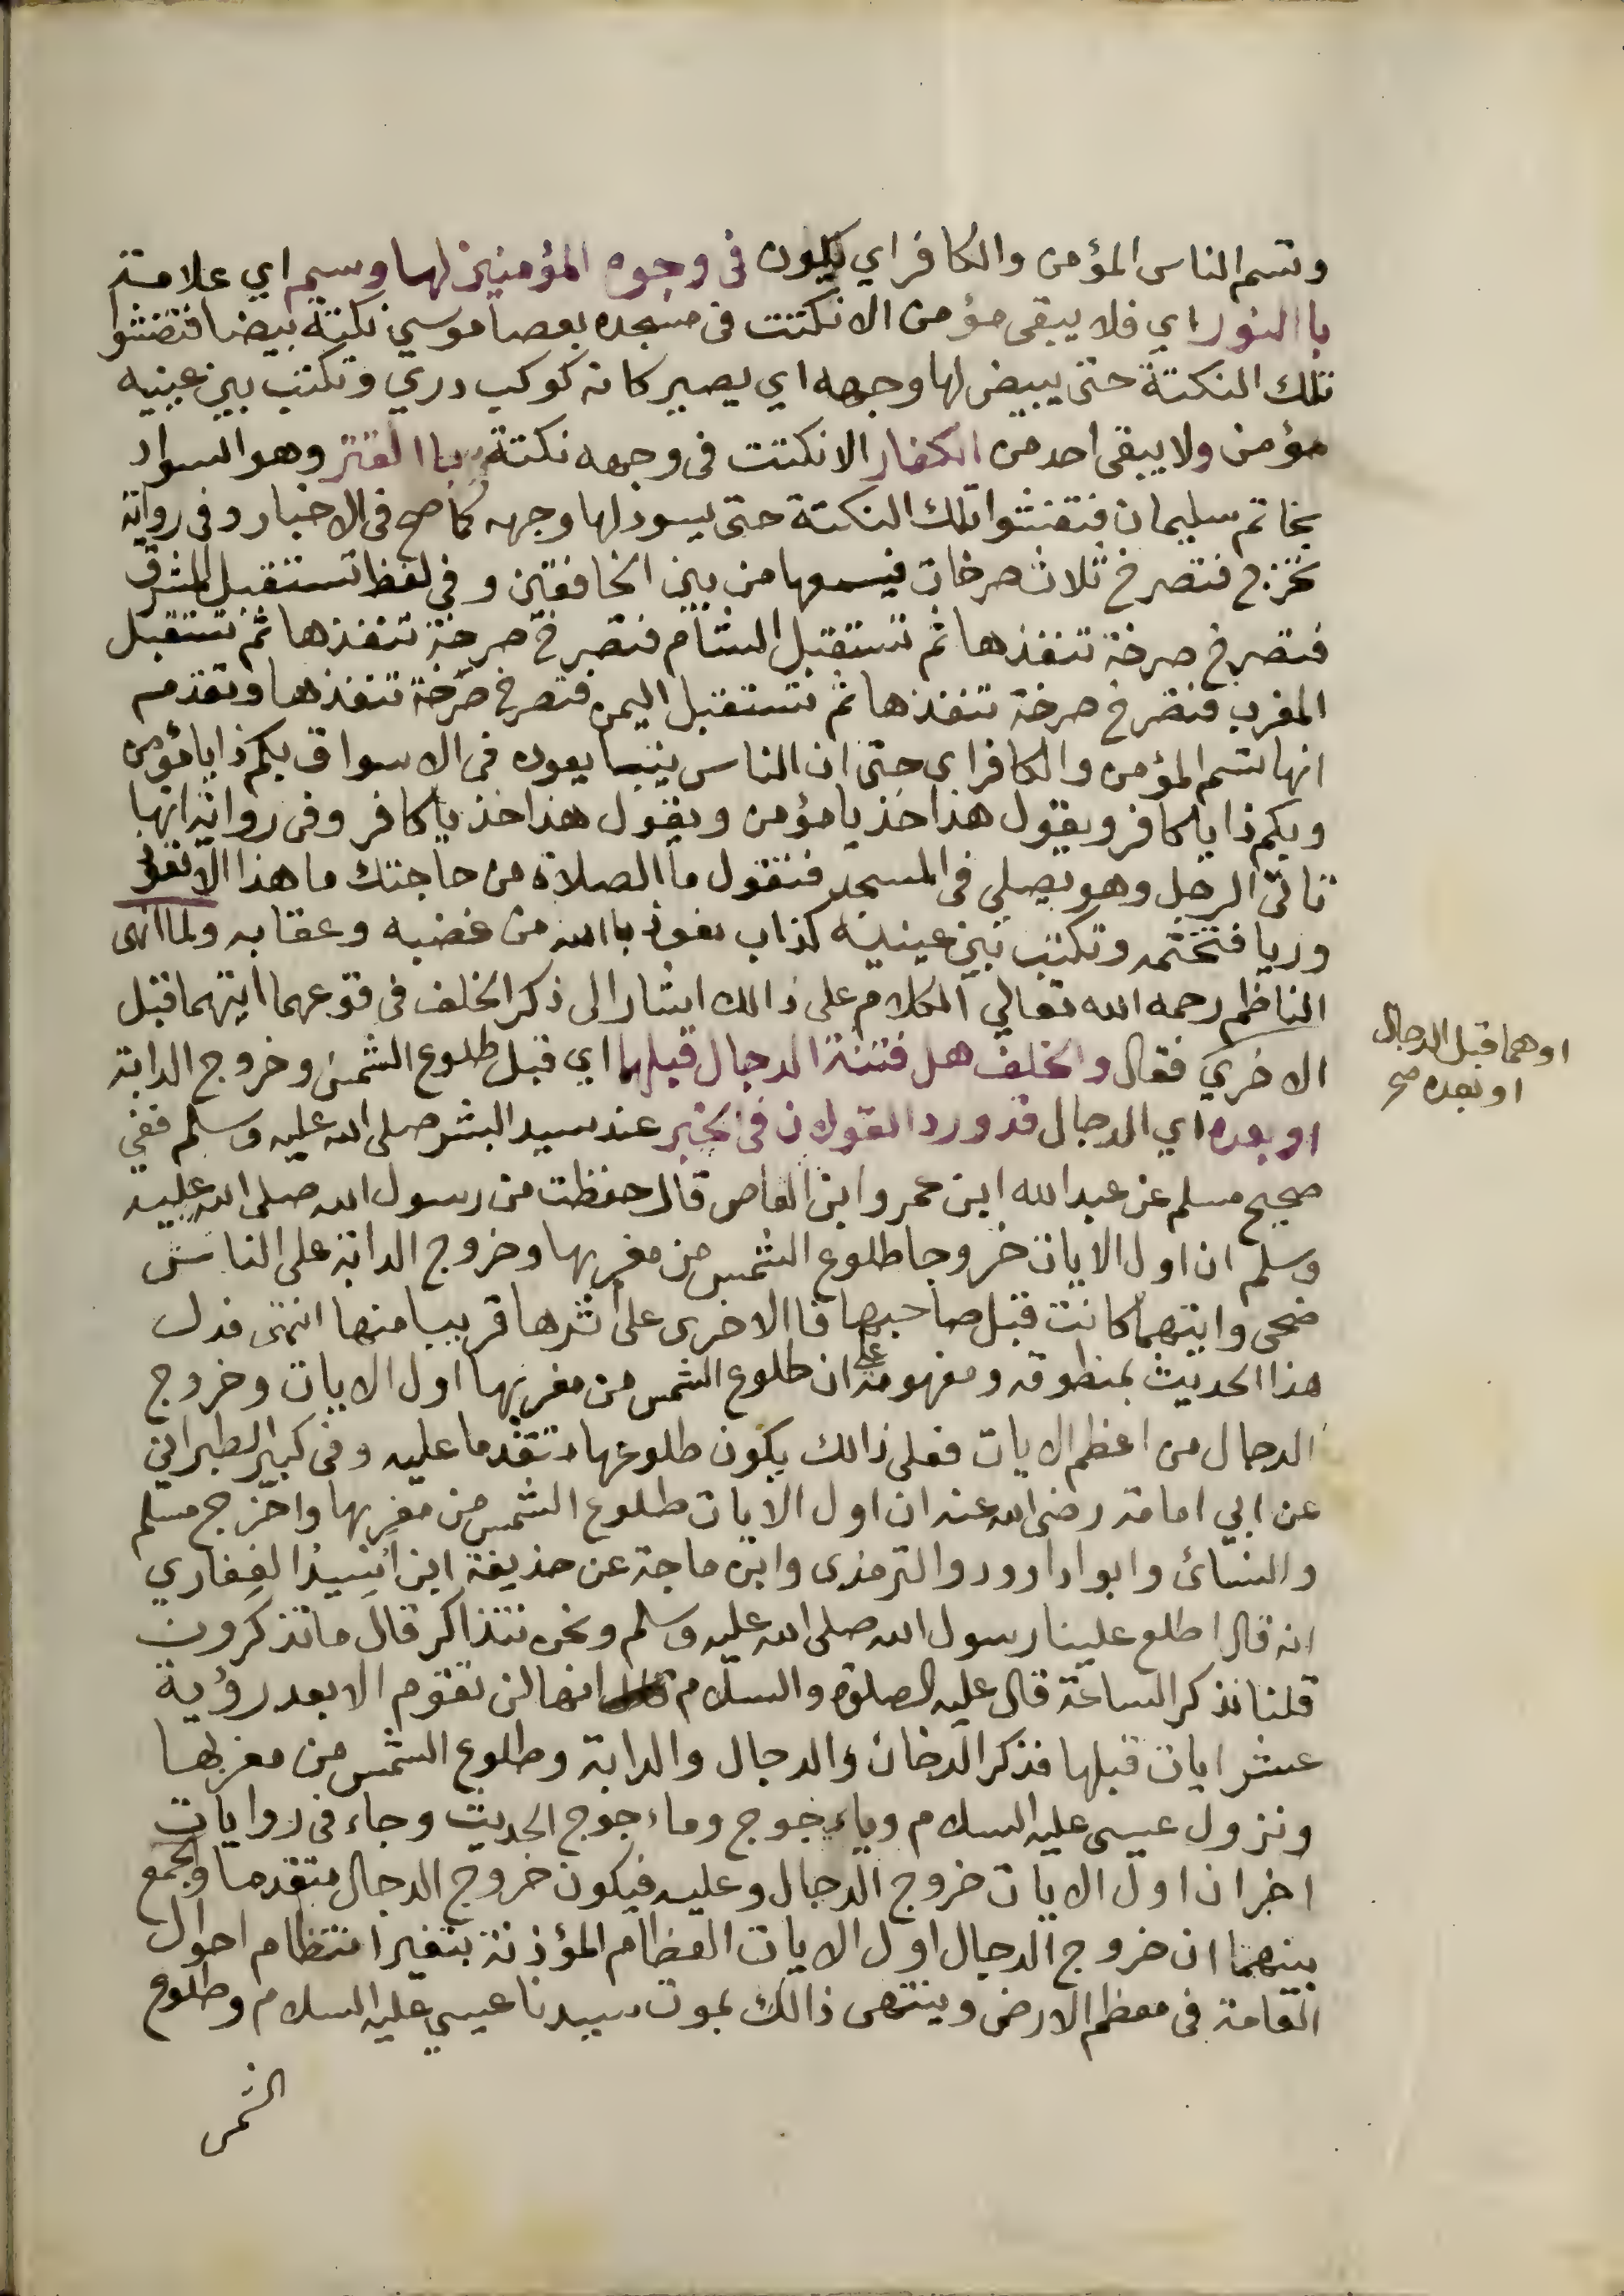 وتسم الناس المؤمن والكافر اي يكون في وجوه المؤمنين لها وسم اي علامة
با النور اي فلا يبقى مؤمن الا نكتت في مسجده بعصا موسي نكتة بيضا فتفشوا
تلك النكتة حتى يبيض لها وجهه اي يصير كانه كوكب دري وتكتب بين عينيه
مؤمن ولا يبقى احد من الكفار الا نكتت في وجهه نكتة با القتر وهو السواد
بخاتم سليمان فتفشوا تلك النكتة حتى يسود لها وجهه كما صح في الاخبار وفي رواية
تخرج فتصرخ ثلاث صرخات فيسمعها من بين الخافقين وفي لفظ تستقبل المشرق
فتصرخ صرخة تنفذها ثم تستقبل الشام فتصرخ صرخة تنفذها ثم تستقبل
المغرب فتصرخ صرخة تنفذها ثم تستقبل اليمن فتصرخ صرخة تنفذها وتقدم
انها تسم المؤمن والكافر اي حتى ان الناس يتبايعون في الاسواق بكم ذا يا مؤمن
وبكم ذا يا كافر ويقول هذا خذ يا مؤمن ويقول هذا خذ يا كافر وفي رواية انها
تاتي الرجل وهو يصلي في المسجد فتقول ما الصلاة من حاجتك ما هذا الا تعوذ
وريا فتختمه وتكتب بين عينيه كذاب نعوذ با الله من غضبه وعقابه ولما انهى
الناظم رحمه الله تعالي الكلام على ذالك اشار الى ذكر الخلف في وقوعهما ايتهما قبل
الاخري فقال والخلف هل فتنة الدجال قبلها اي قبل طلوع الشمس وخروج الدابة
او بعده اي الدجال قد ورد القولان في الخبر عند سيد البشر صلى الله عليه وسلم ففي
صحيح مسلم عن عبد الله ابن عمر وابن العاص قال حفظت من رسول الله صلى الله عليه
وسلم ان اول الايات خروجا طلوع الشمس من مغربها وخروج الدابة على الناس
ضحى وايتهما كانت قبل صاحبها فا الاخرى على اثرها قريبا منها انتهى فدل
هذا الحديث بمنطوقه ومفهومه على ان طلوع الشمس من مغربها اول الايات وخروج
الدجال من اعظم الايات فعلى ذالك يكون طلوعها متقدما عليه وفي كبير الطبراني
عن ابي امامة رضى الله عنه ان اول الايات طلوع الشمس من مغربها واخرج مسلم
والنسائ وابوا داوود والترمذى وابن ماجة عن حذيفة ابن اسيد الغفاري
انه قال اطلع علينا رسول الله صلى الله عليه وسلم ونحن نتذاكر قال ما تذكرون
قلنا نذكر الساعة قال عليه الصلوة والسلام انها لن تقوم الا بعد رؤية
عشر ايات قبلها فذكر الدخان والدجال والدابة وطلوع الشمس من مغربها
ونزول عيسى عليه السلام وياءجوج وماءجوج الحديث وجاء في روايات
اخر ان اول الايات خروج الدجال وعليه فيكون خروج الدجال متقدما والجمع
بينهما ان خروج الدجال اول الايات العظام المؤذنة بتغير انتظام احوال
العامة في معظم الارض وينتهى ذالك بموت سيدنا عيسي عليه السلام وطلوع
الشمس
او هما قبل الدجال
او بعده صح